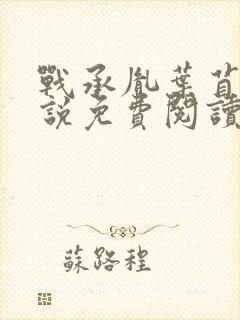 戰承胤葉苜
說免費閱讀
蘇路程